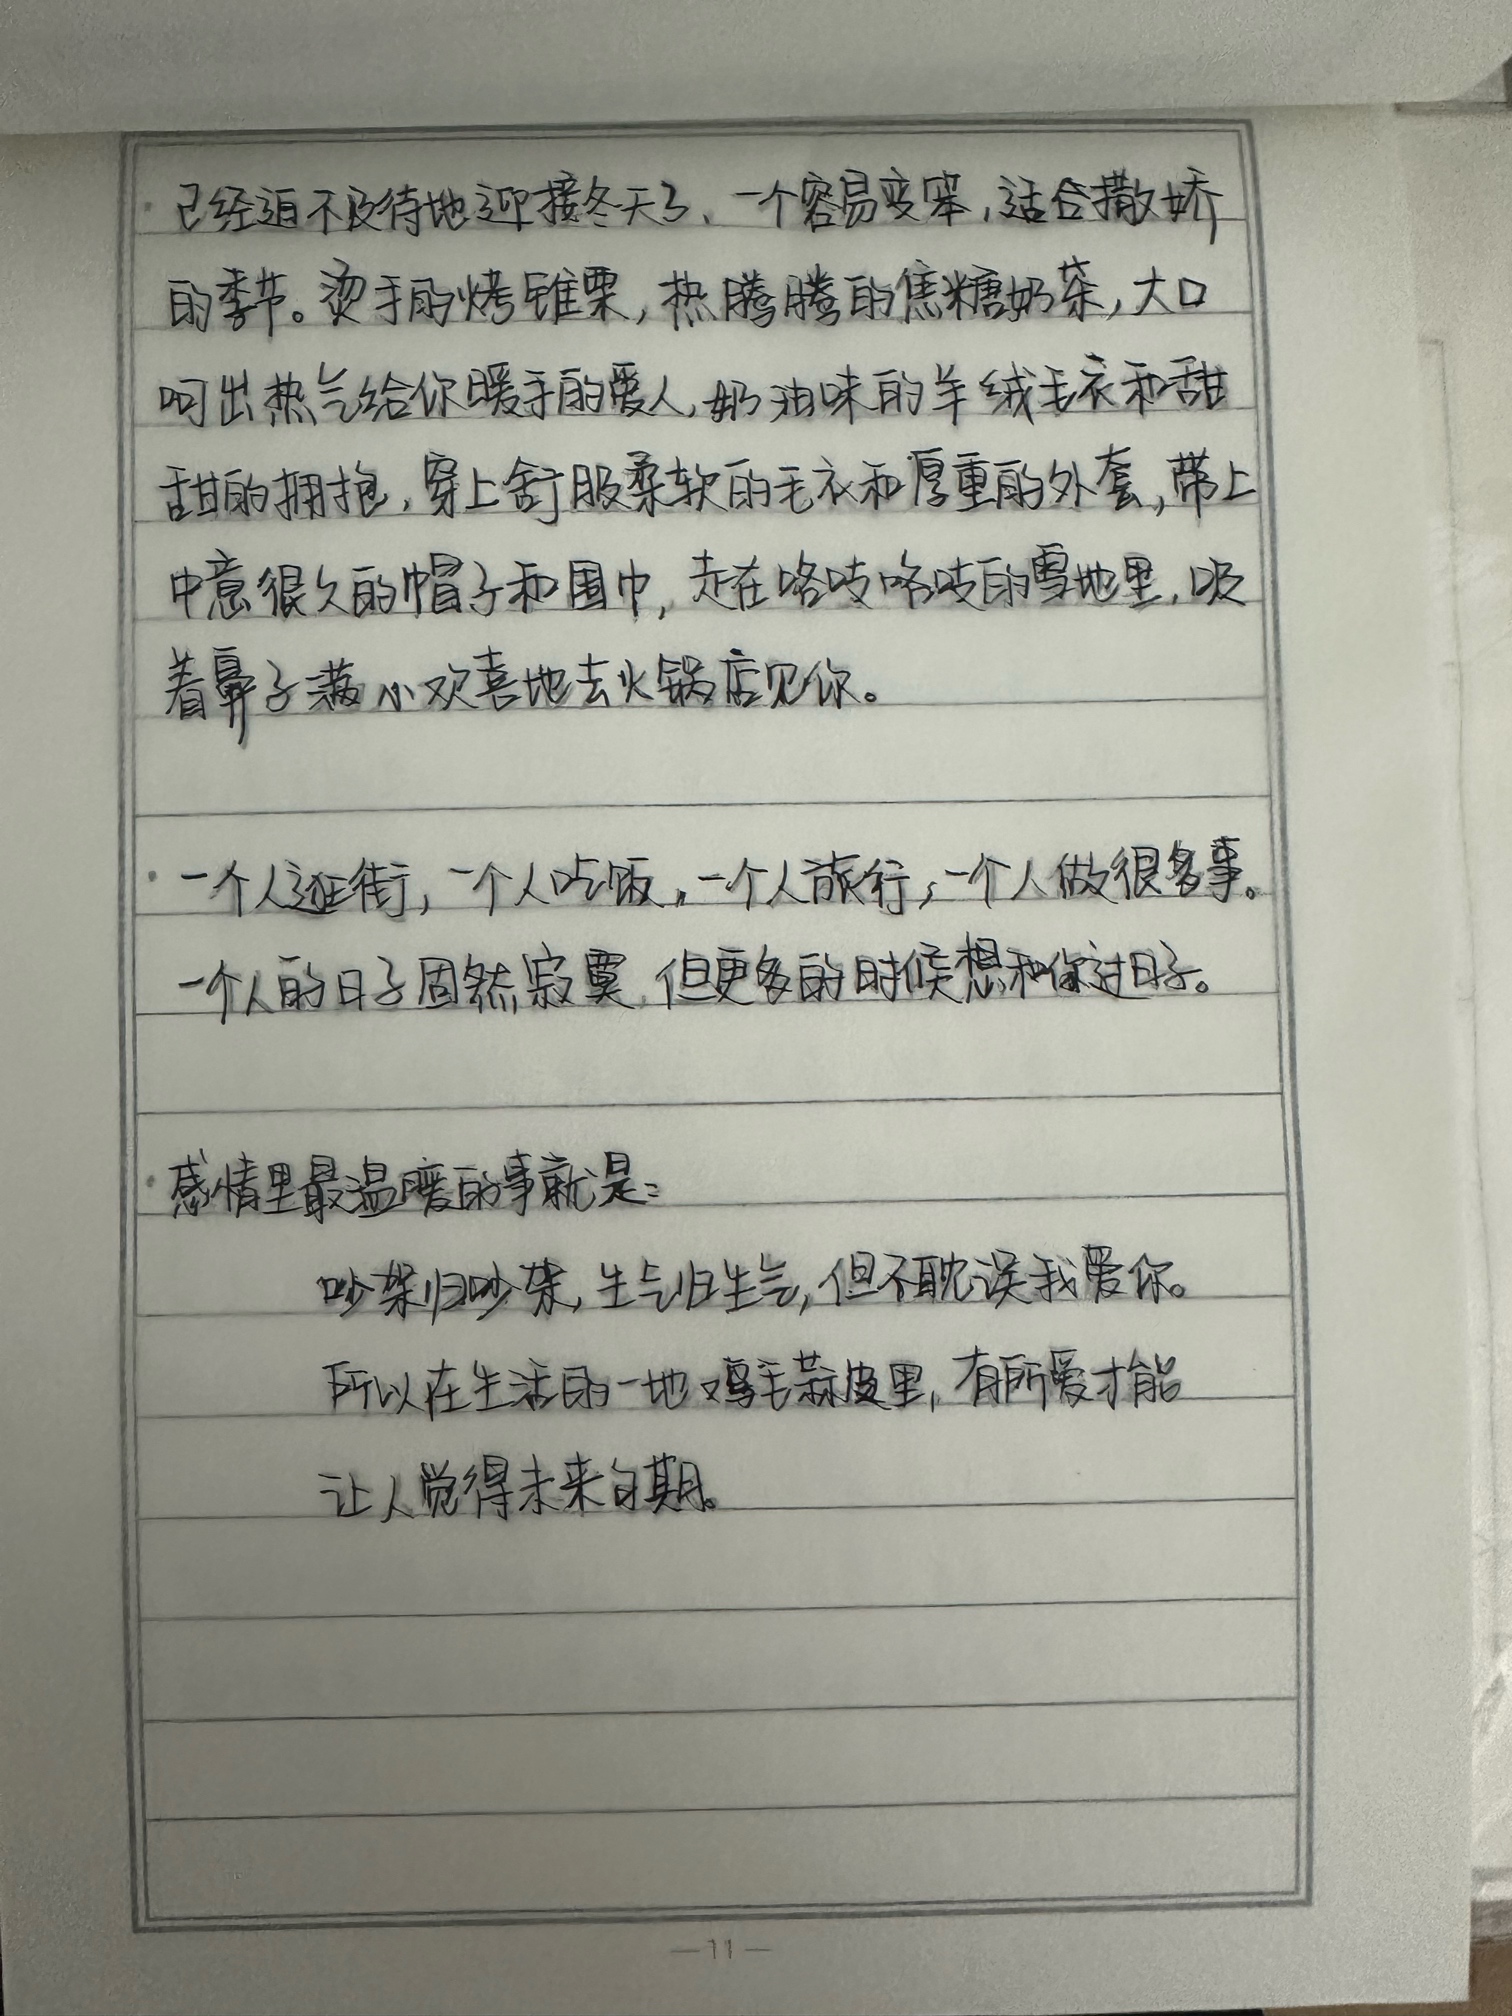 ·已经迫不及待地迎接冬天了、一个容易变笨,适合撒娇
的季节。烫手的烤锥栗,热腾腾的焦糖奶茶,大口
呵出热气给你暖手的爱人,奶油味的羊绒毛衣和甜
甜的拥抱,穿上舒服柔软的毛衣和厚重的外套,带上
中意很久的帽子和围巾,走在咯吱咯吱的雪地里,吸
着鼻子满心欢喜地去火锅店见你。
·一个人逛街,一个人吃饭,一个人旅行,一个人做很多事。
一个人的日子固然寂寞,但更多的时候想和你过日子。
·感情里最温暖的事就是:
吵架归吵架,生气归生气,但不耽误我爱你。
所以在生活的一地鸡毛蒜皮里,有所爱才能
让人觉得未来可期。
—11—